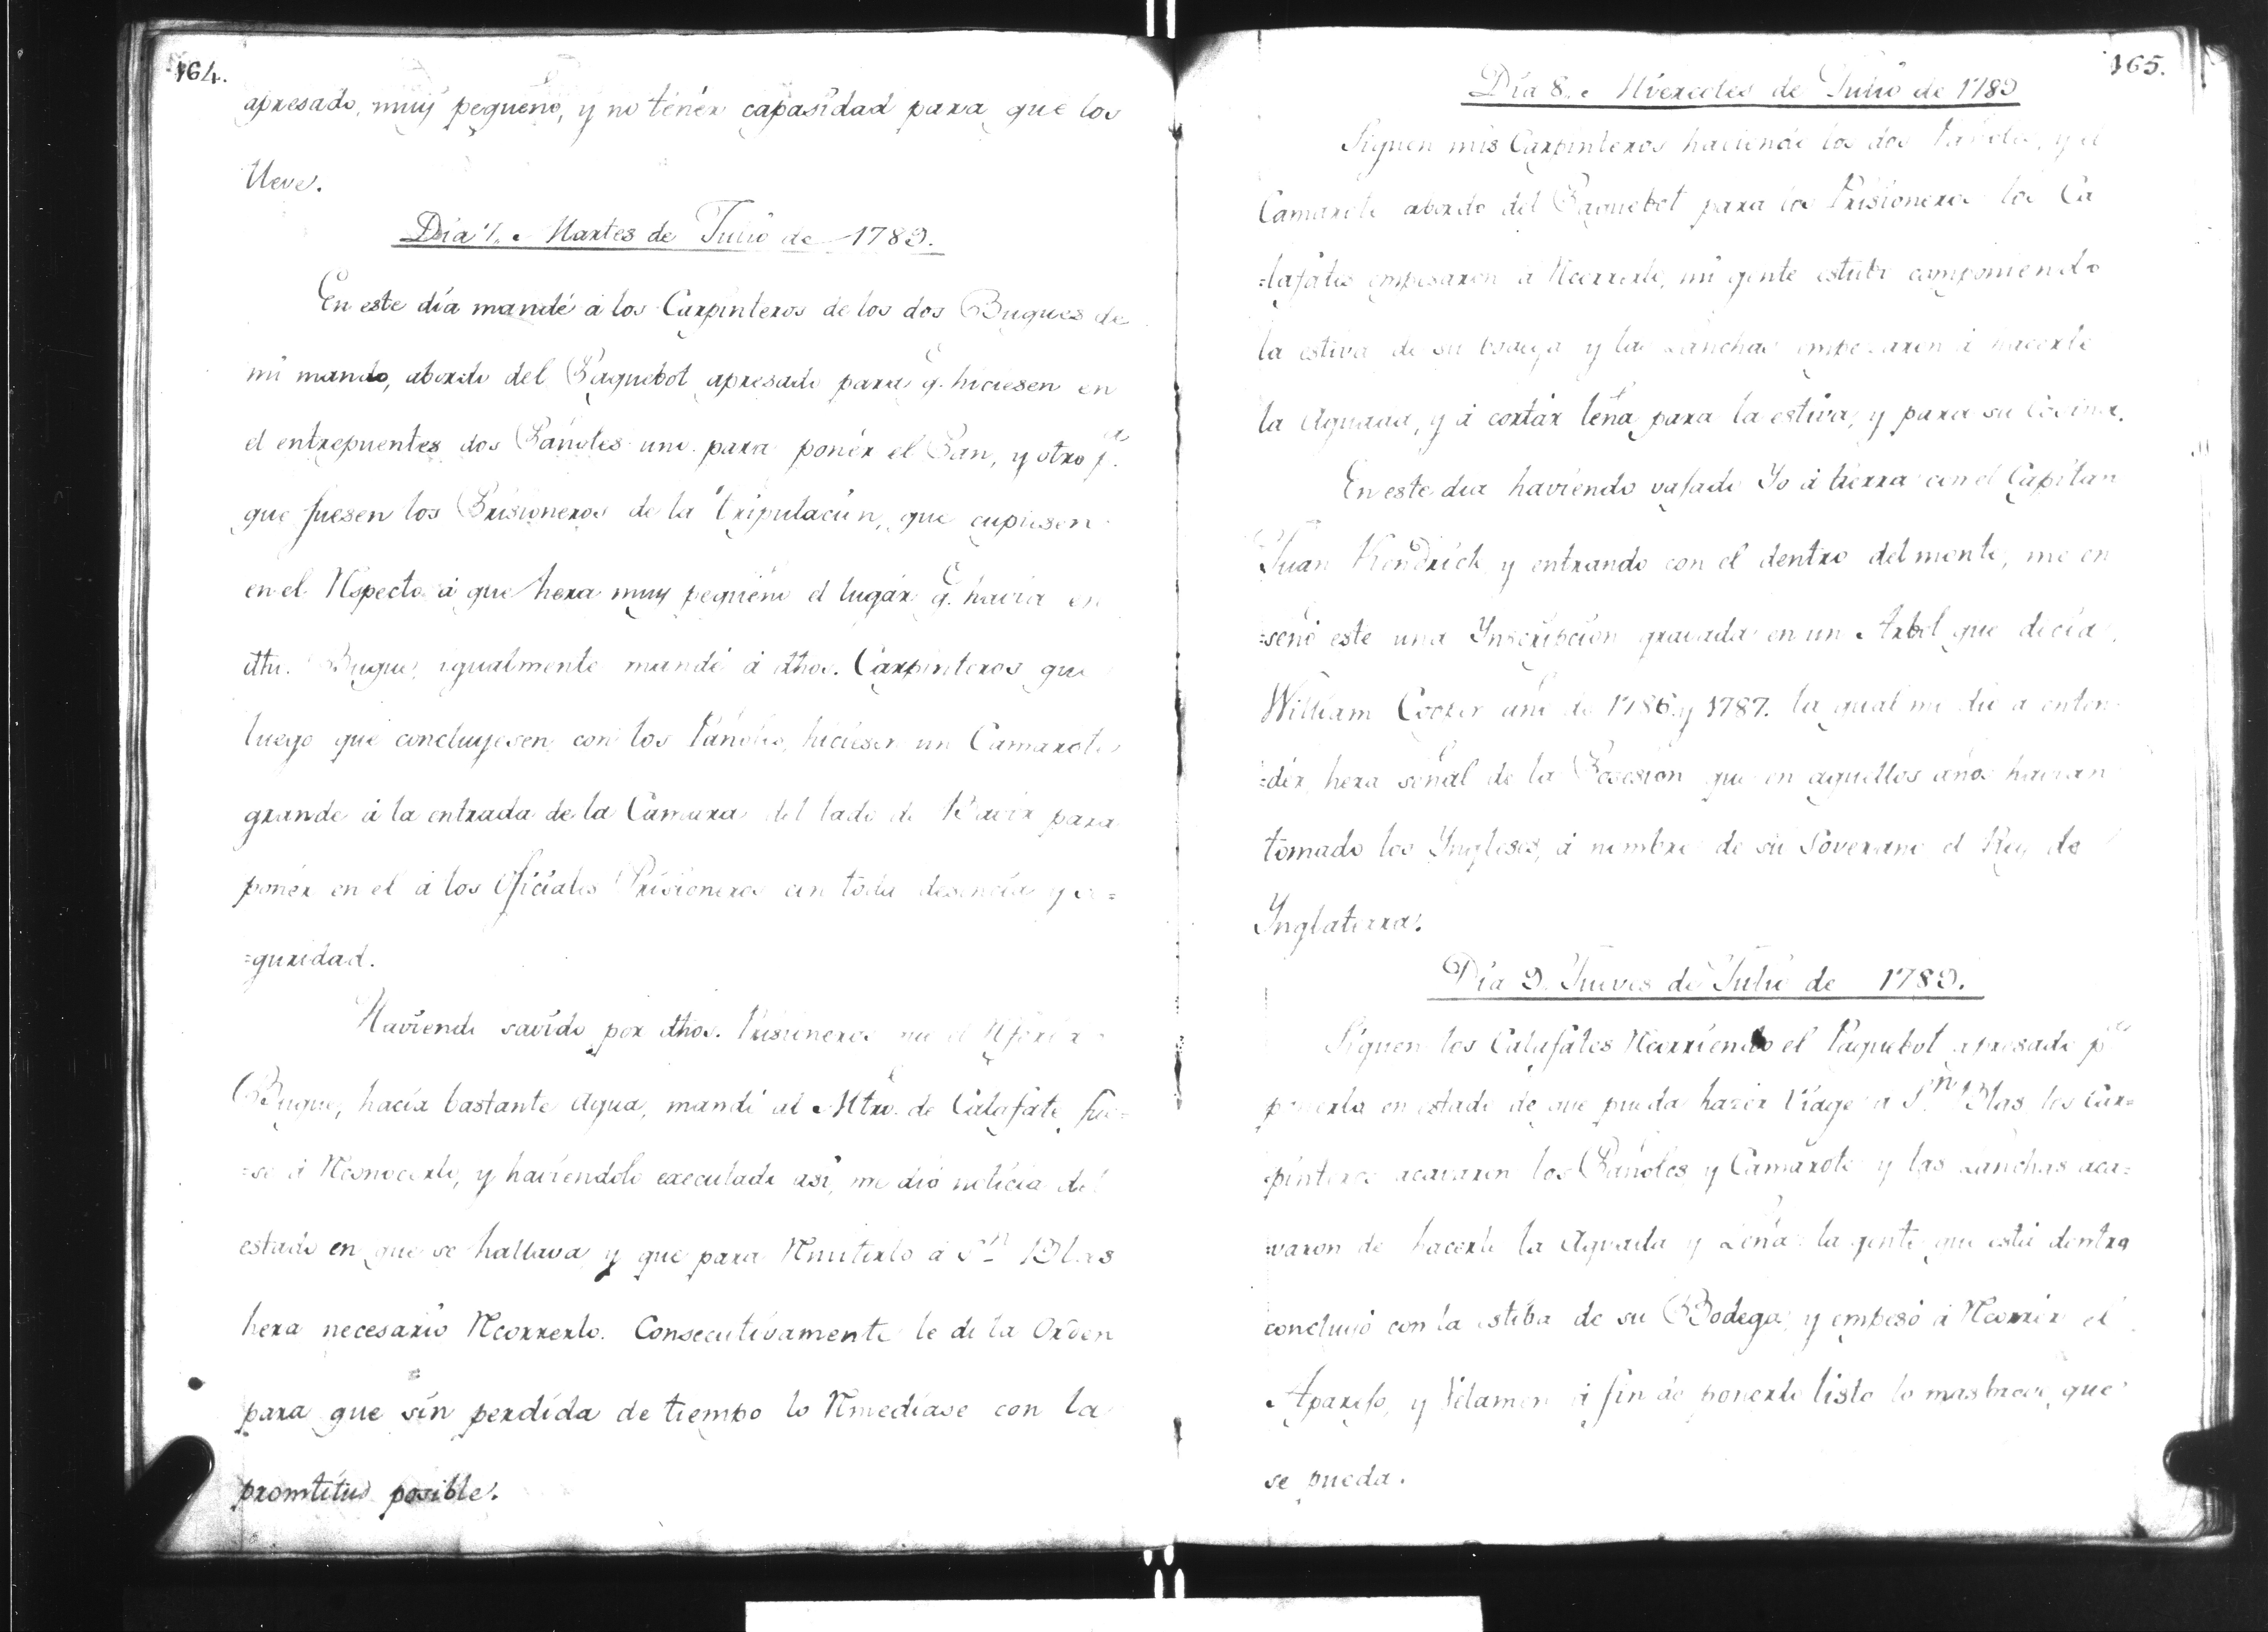 164.
apresado, muy pequeño, y no tener capasidad para que los
lleve.
Dia 7. Martes de Julio de 1789.
En este día mandé á los Carpinteros de los dos Buques de
mi mando, abordo del Paquebot apresado para q.e hiciesen en
el entrepuentes dos Pañoles uno para ponér el Pan, y otro p.a
que fuesen los Prisioneros de la Tripulacion, que cupiesen
en el Respecto á que hera muy pequeño el lugár q.e havia en
dho. Buque, igualmente mandé á dhos. Carpinteros que
luego que concluyesen con los Pañoles, hiciesen un Camarote
grande á la entrada de la Camara del lado de Bavór para
ponér en el á los Oficiales Prisioneros con toda desencia y se=
=guridad.
Haviendo savído por dhos. Prisioneros que el Referido
Buque, hacía bastante Agua, mandé al Mtro. de Calafate fue=
=se á Reconocerlo, y haviendolo executado así, me dió noticia del
estado en que se hallava y que para Remitirlo á S.n Blas
hera necesario Recorrerlo. Consecutivamente le di la Orden
para que sin perdída de tiempo lo Remediase con la
promtitud posible.
165.
Día 8. Miercoles de Julio de 1789
Siguen mis Carpinteros haciendo los dos Pañoles, y el
Camarote abordo del Paquebot para los Prisioneros los Ca
=lafates empesaron á Recorrerlo, mi gente estubo componiendo
la estiva de su bodega y las Lanchas empesaron á hacerle
la Aguada, y á cortár leña para la estiva, y para su Cocina.
En este dia haviendo vajado Yo á tierra con el Capitan
Juan Kendrick y entrando con el dentro del monte, me en
=señó este una Ynscripcion gravada en un Arbol que decia
William Cooker año de 1786 y 1787. la qual me dio a enten
=dér hera señal de la Posesion que en aquellos años havian
tomado los Yngleses, á nombre de su Soverano el Rey de
Ynglaterra.
Día 9. Jueves de Julio de 1789.
Siguen los Calafates Recorriendo el Paquebot apresado p.a
ponerlo en estado de que pueda hazer Viage a S.n Blas los Car=
=pinteros acavaron los Pañoles y Camarote y las Lanchas aca=
=varon de hacerle la Aguada y Leña: la gente que está dentro
concluyó con la estiba de su Bodega, y empesó á Recorrér el
Aparejo, y Velamen á fin de ponerlo listo lo mas breve que
se pueda.